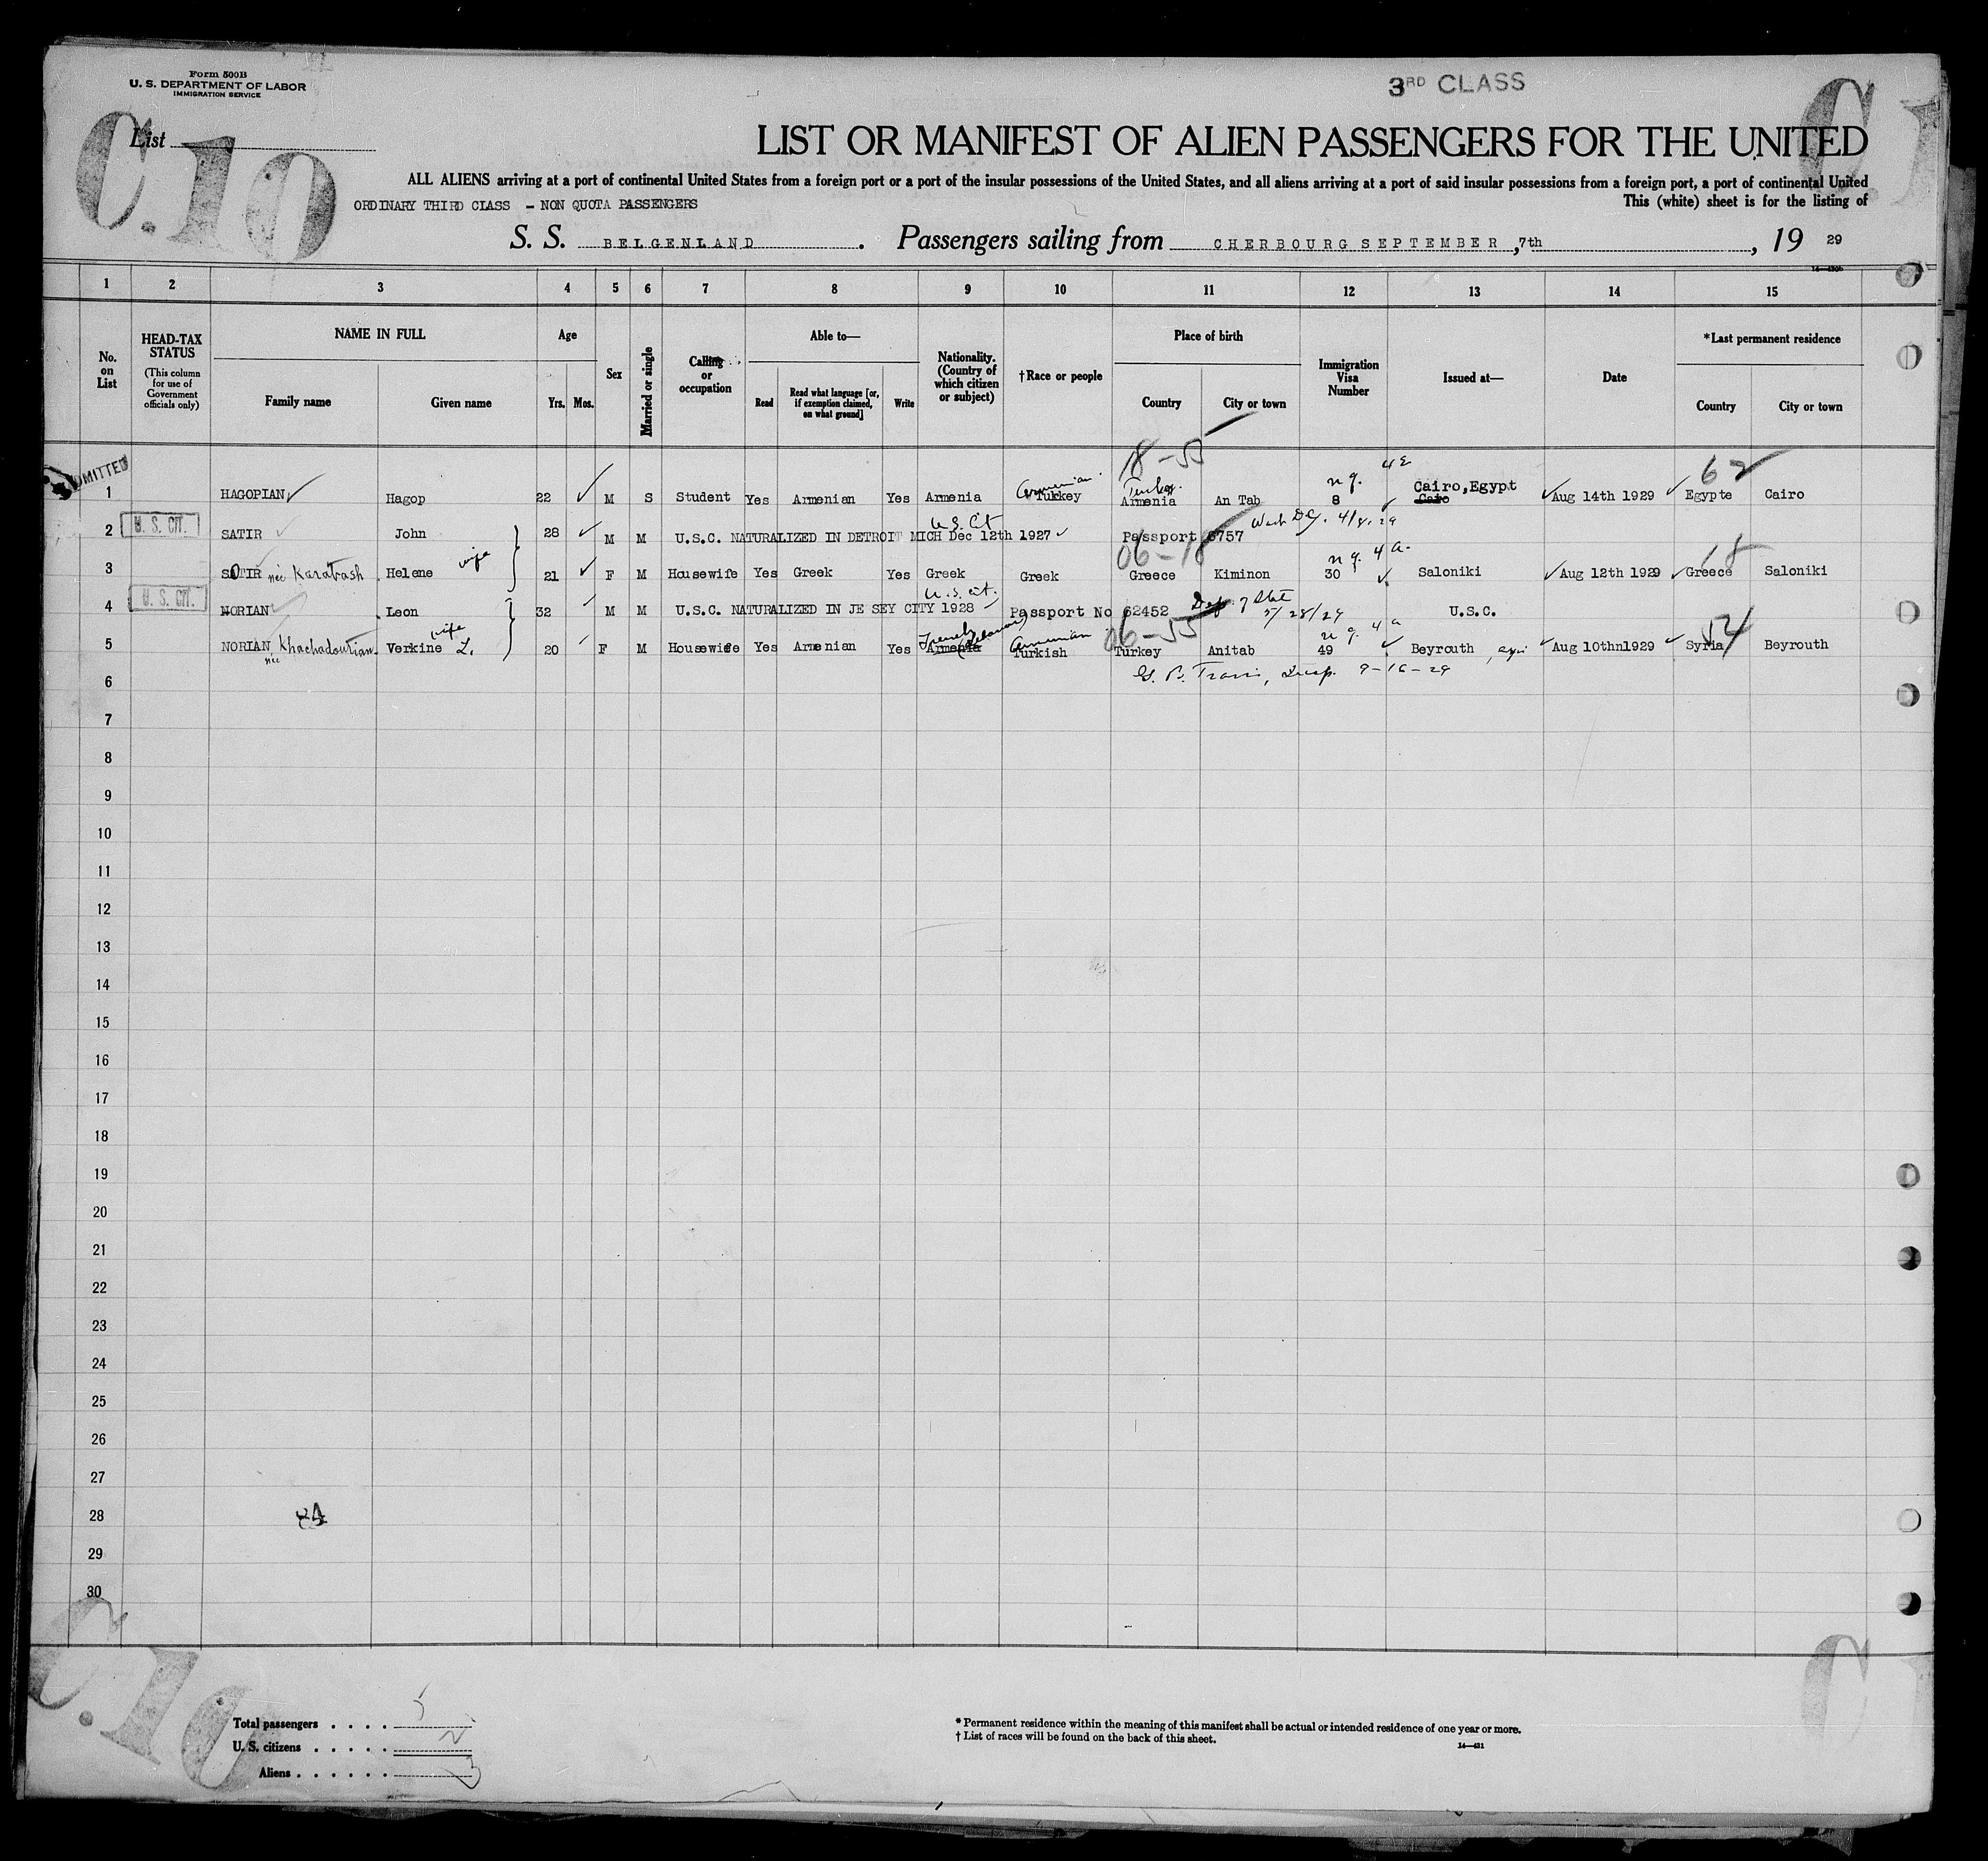 Form 500B
U. S. DEPARTMENT OF LABOR
IMMIGRATION SERVICE
3RD CLASS
C.10
List
LIST OR MANIFEST OF ALIEN PASSENGERS FOR THE UNITED
ALL ALIENS arriving at a port of continental United States from a foreign port or a port of the insular possessions of the United States, and all aliens arriving at a port of said insular possessions from a foreign port, a port of continental United
ORDINARY THIRD CLASS - NON QUOTA PASSENGERS
This (white) sheet is for the listing of
S. S. BELGENLAND . Passengers sailing from CHERBOURG SEPTEMBER ,7th , 19 29
1 2 3 4 5 6 7 8 9 10 11 12 13 14 15
No. on List
HEAD-TAX STATUS
(This column for use of Government officials only)
NAME IN FULL
Family name Given name
Age
Yrs. Mos.
Sex
Married or single
Calling or occupation
Able to—
Read Read what language [or, if exemption claimed, on what ground] Write
Nationality. (Country of which citizen or subject)
†Race or people
Place of birth
Country City or town
Immigration Visa Number
Issued at—
Date
*Last permanent residence
Country City or town
18-55 62
ADMITTED
Armenian Turkey n q. 4 E
1 HAGOPIAN Hagop 22 M S Student Yes Armenian Yes Armenia Tukkey Armenia An Tab 8 Cairo, Egypt Cairo Aug 14th 1929 Egypte Cairo
U. S. Cit Wash DC. 4/8.29
2 U. S. CIT. SATIR John 28 M M U.S.C. NATURALIZED IN DETROIT MICH Dec 12th 1927 Passport 6757
06-18 n q. 4 a. 18
3 SATIR née Karabash Helene wife 21 F M Housewife Yes Greek Yes Greek Greek Greece Kiminon 30 Saloniki Aug 12th 1929 Greece Saloniki
U. S. cit. Dep. of State 5/28/29
4 U. S. CIT. NORIAN Leon 32 M M U.S.C. NATURALIZED IN JE SEY CITY 1928 Passport No 62452 U.S.C.
French (Lebanon) Armenian 06-55 n q. 4 a 54
5 NORIAN née Khachadourian Verkine L. wife 20 F M Housewife Yes Armenian Yes Armenia Turkish Turkey Anitab 49 Beyrouth Aug 10thn1929 Syria Beyrouth
6 Insp. 9-16-29
7
8
9
10
11
12
13
14
15
16
17
18
19
20
21
22
23
24
25
26
27
28
29
30
C.10
Total passengers . . . . 5
U. S. citizens . . . . . 2
Aliens . . . . . . 3
* Permanent residence within the meaning of this manifest shall be actual or intended residence of one year or more.
† List of races will be found on the back of this sheet.
14—431